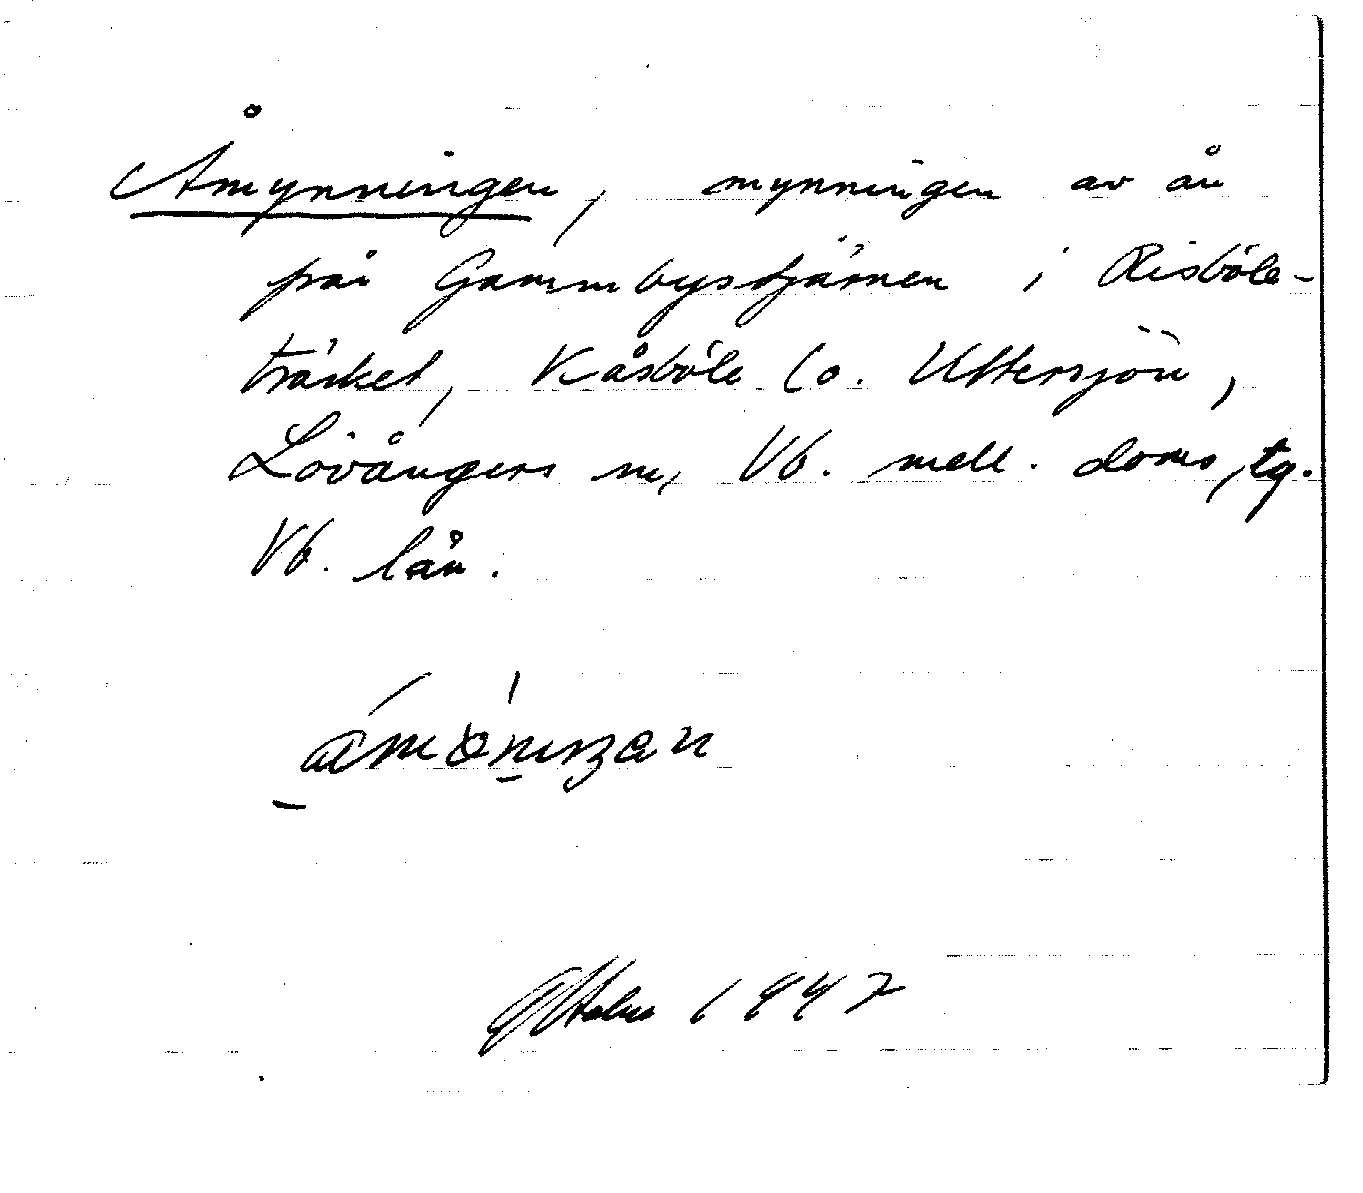 Åmynningen, mynningen av ån
från Gammbystjärnen i Risböle-
träsket, Kåsböle (o. Uttersjön,
Lövångers sn, Vb. mell. doms.tg.
Vb. län.
1947